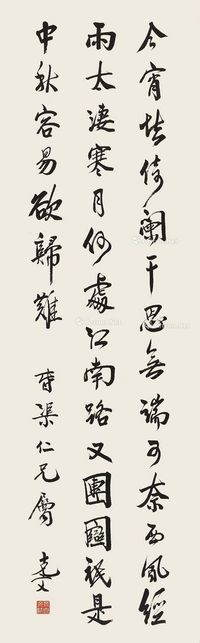 今宵怯倚闌干思無端可奈西風經
雨太淒寒月何處江南路又團圞祗是
中秋容易欲歸難
渠仁兄屬 克文